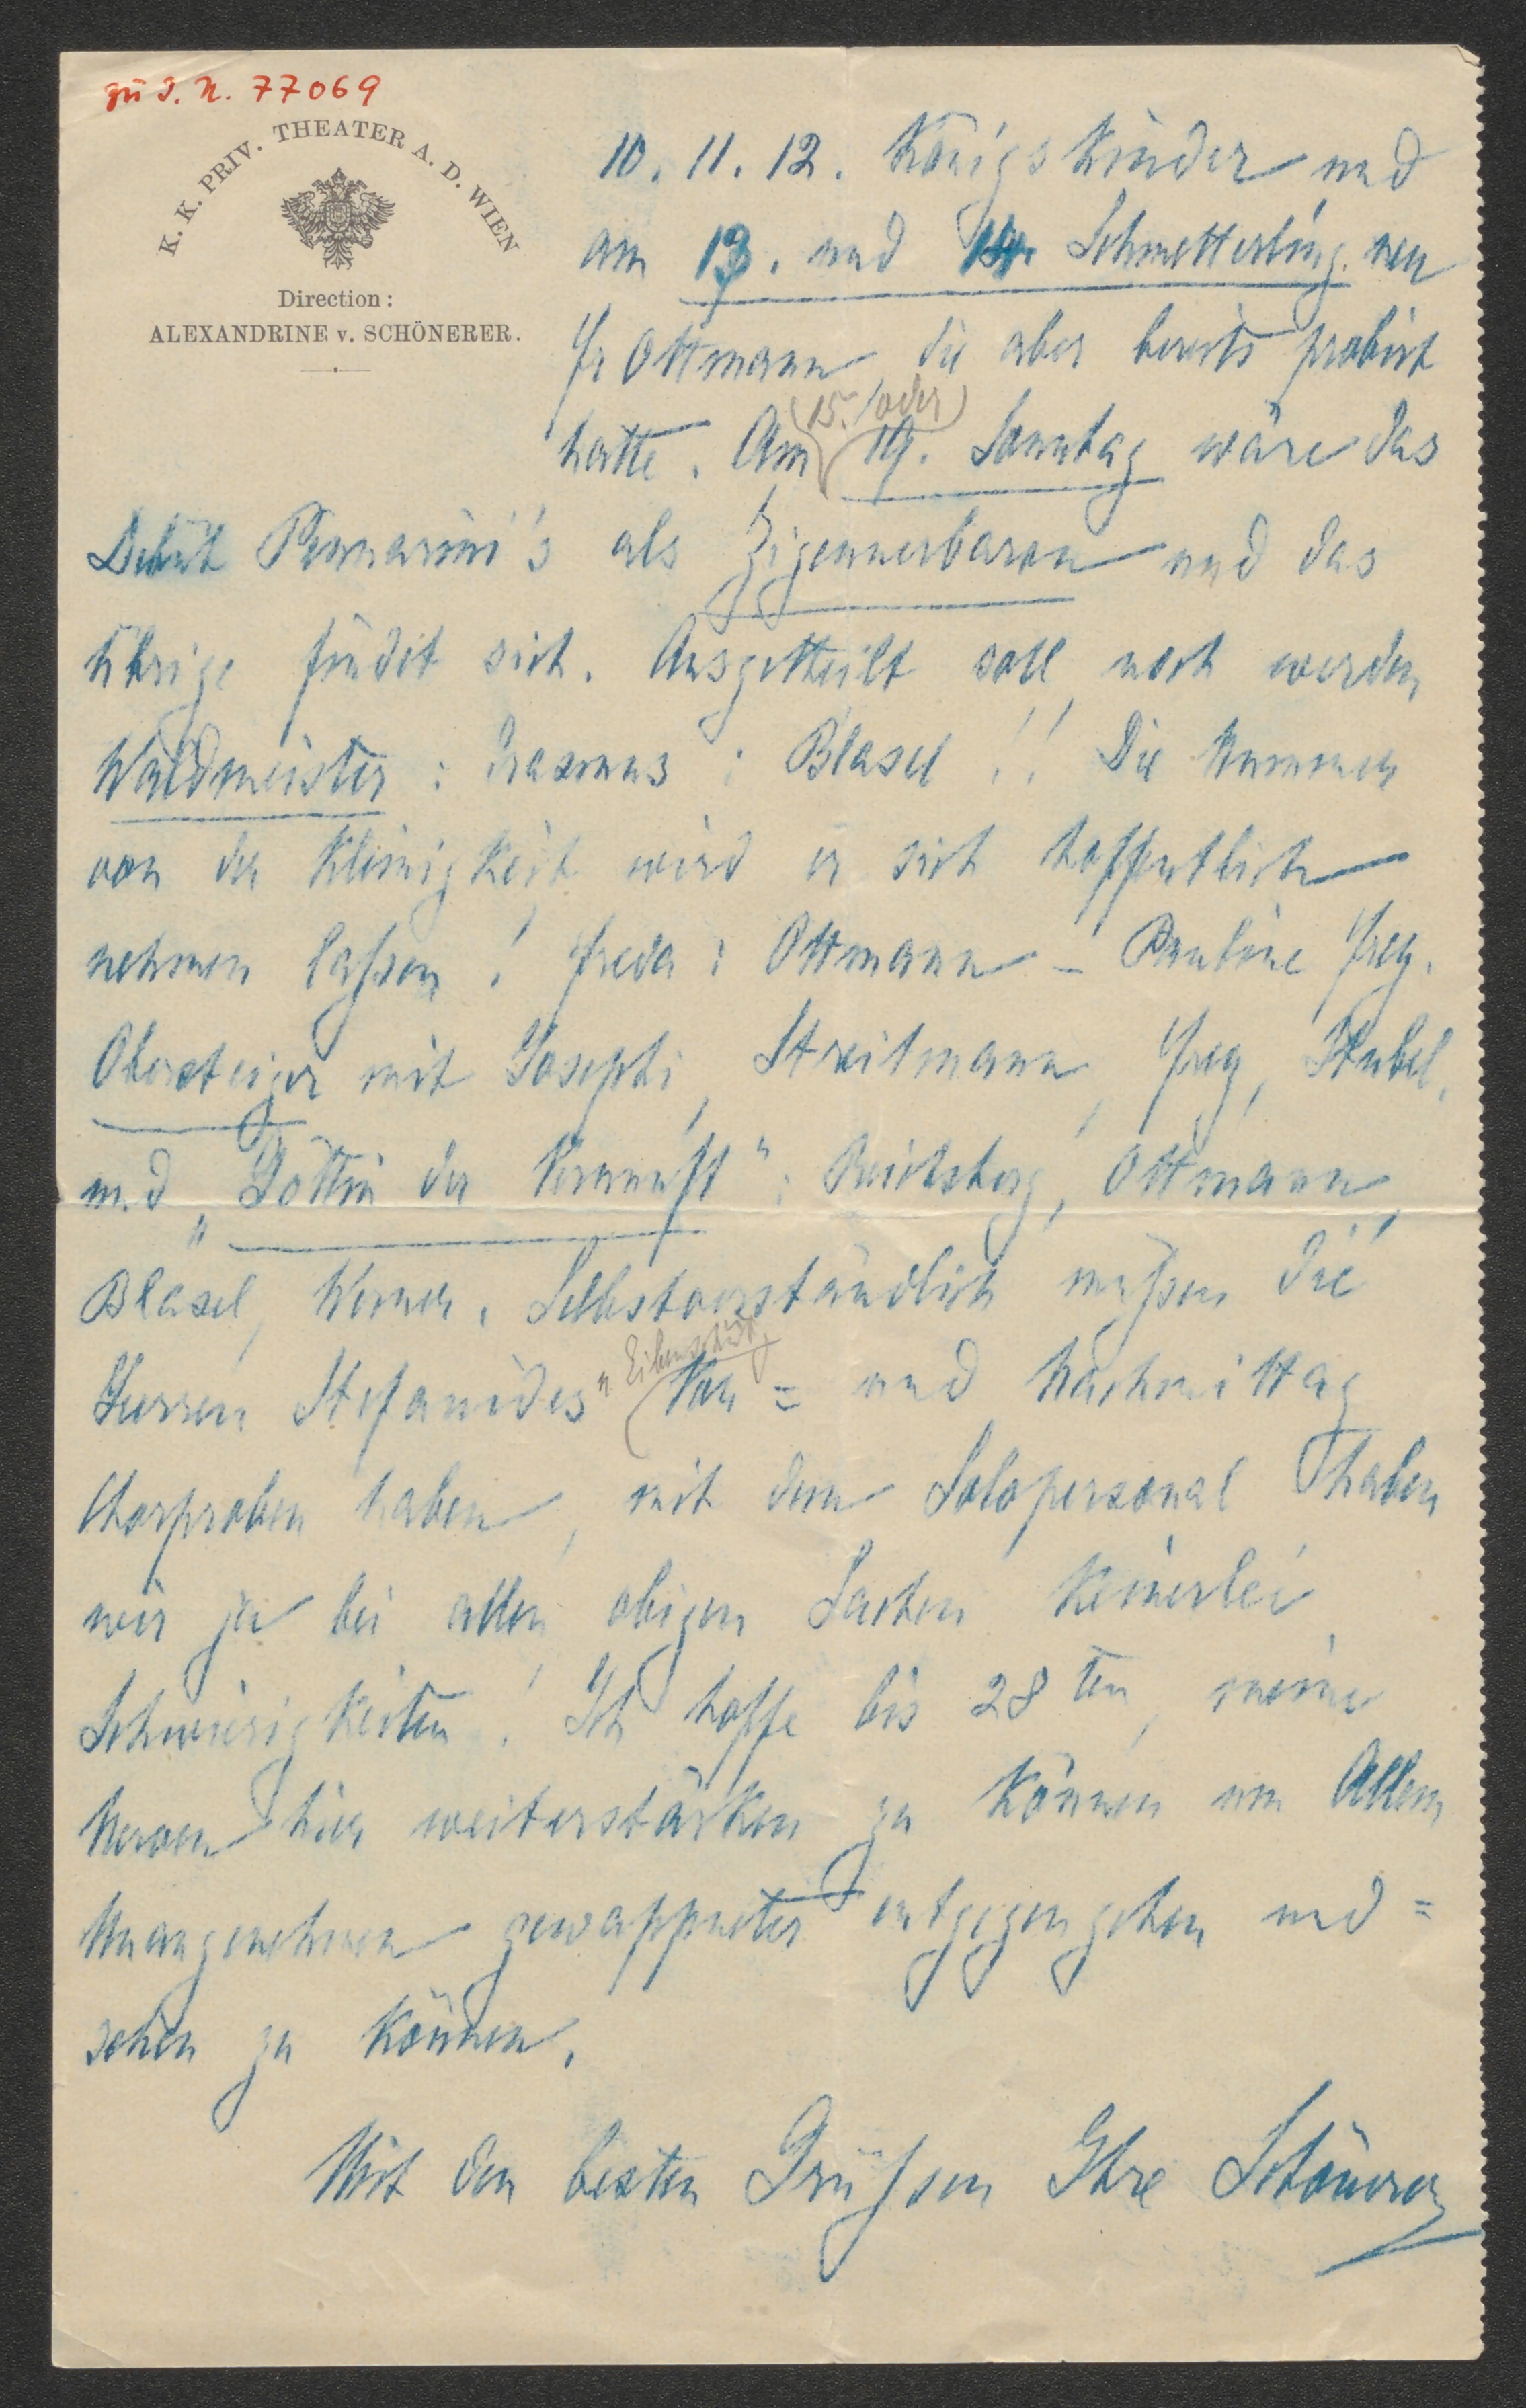 zu I. N. 77069
K. K. PRIV. THEATER A. D. WIEN
Direction:
ALEXANDRINE v. SCHÖNERER.
10. 11. 12. Königskinder und
am 13. und 14. Schmetterling. neu
Fr Ottmann die aber bereits probirt
(15. / oder)
hatte. Am 19. Sonntag wäre das
Debut Pennarini's als Zigeunerbaron und das
übrige findet sich. Ausgetheilt soll noch werden
Waldmeister: Erasmus: Blasel!! Die Nummer
von der Kleinigkeit wird er sich hoffentlich
nehmen laſsen! Freda: Ottmann – Pauline Frey.
Obersteiger mit Josephi, Streitmann, Frey, Stubel,
und „Göttin der Vernunft": Reichsberg, Ottmann,
Blasel, Werner. Selbstverständlich müſsen die
u Eibenschütz
Herren Stefanides Vor = und Nachmittag
Chorproben haben, mit dem Solopersonal haben
wir ja bei allen obigen Sachen keinerlei
Schwierigkeiten! Ich hoffe bis 28ten, meine
Nerven hier weiterstärken zu können um Allem
Unangenehmen gewappneter entgegengehen und =
sehen zu können.
Mit den besten Grüſsen Ihre Schönerer